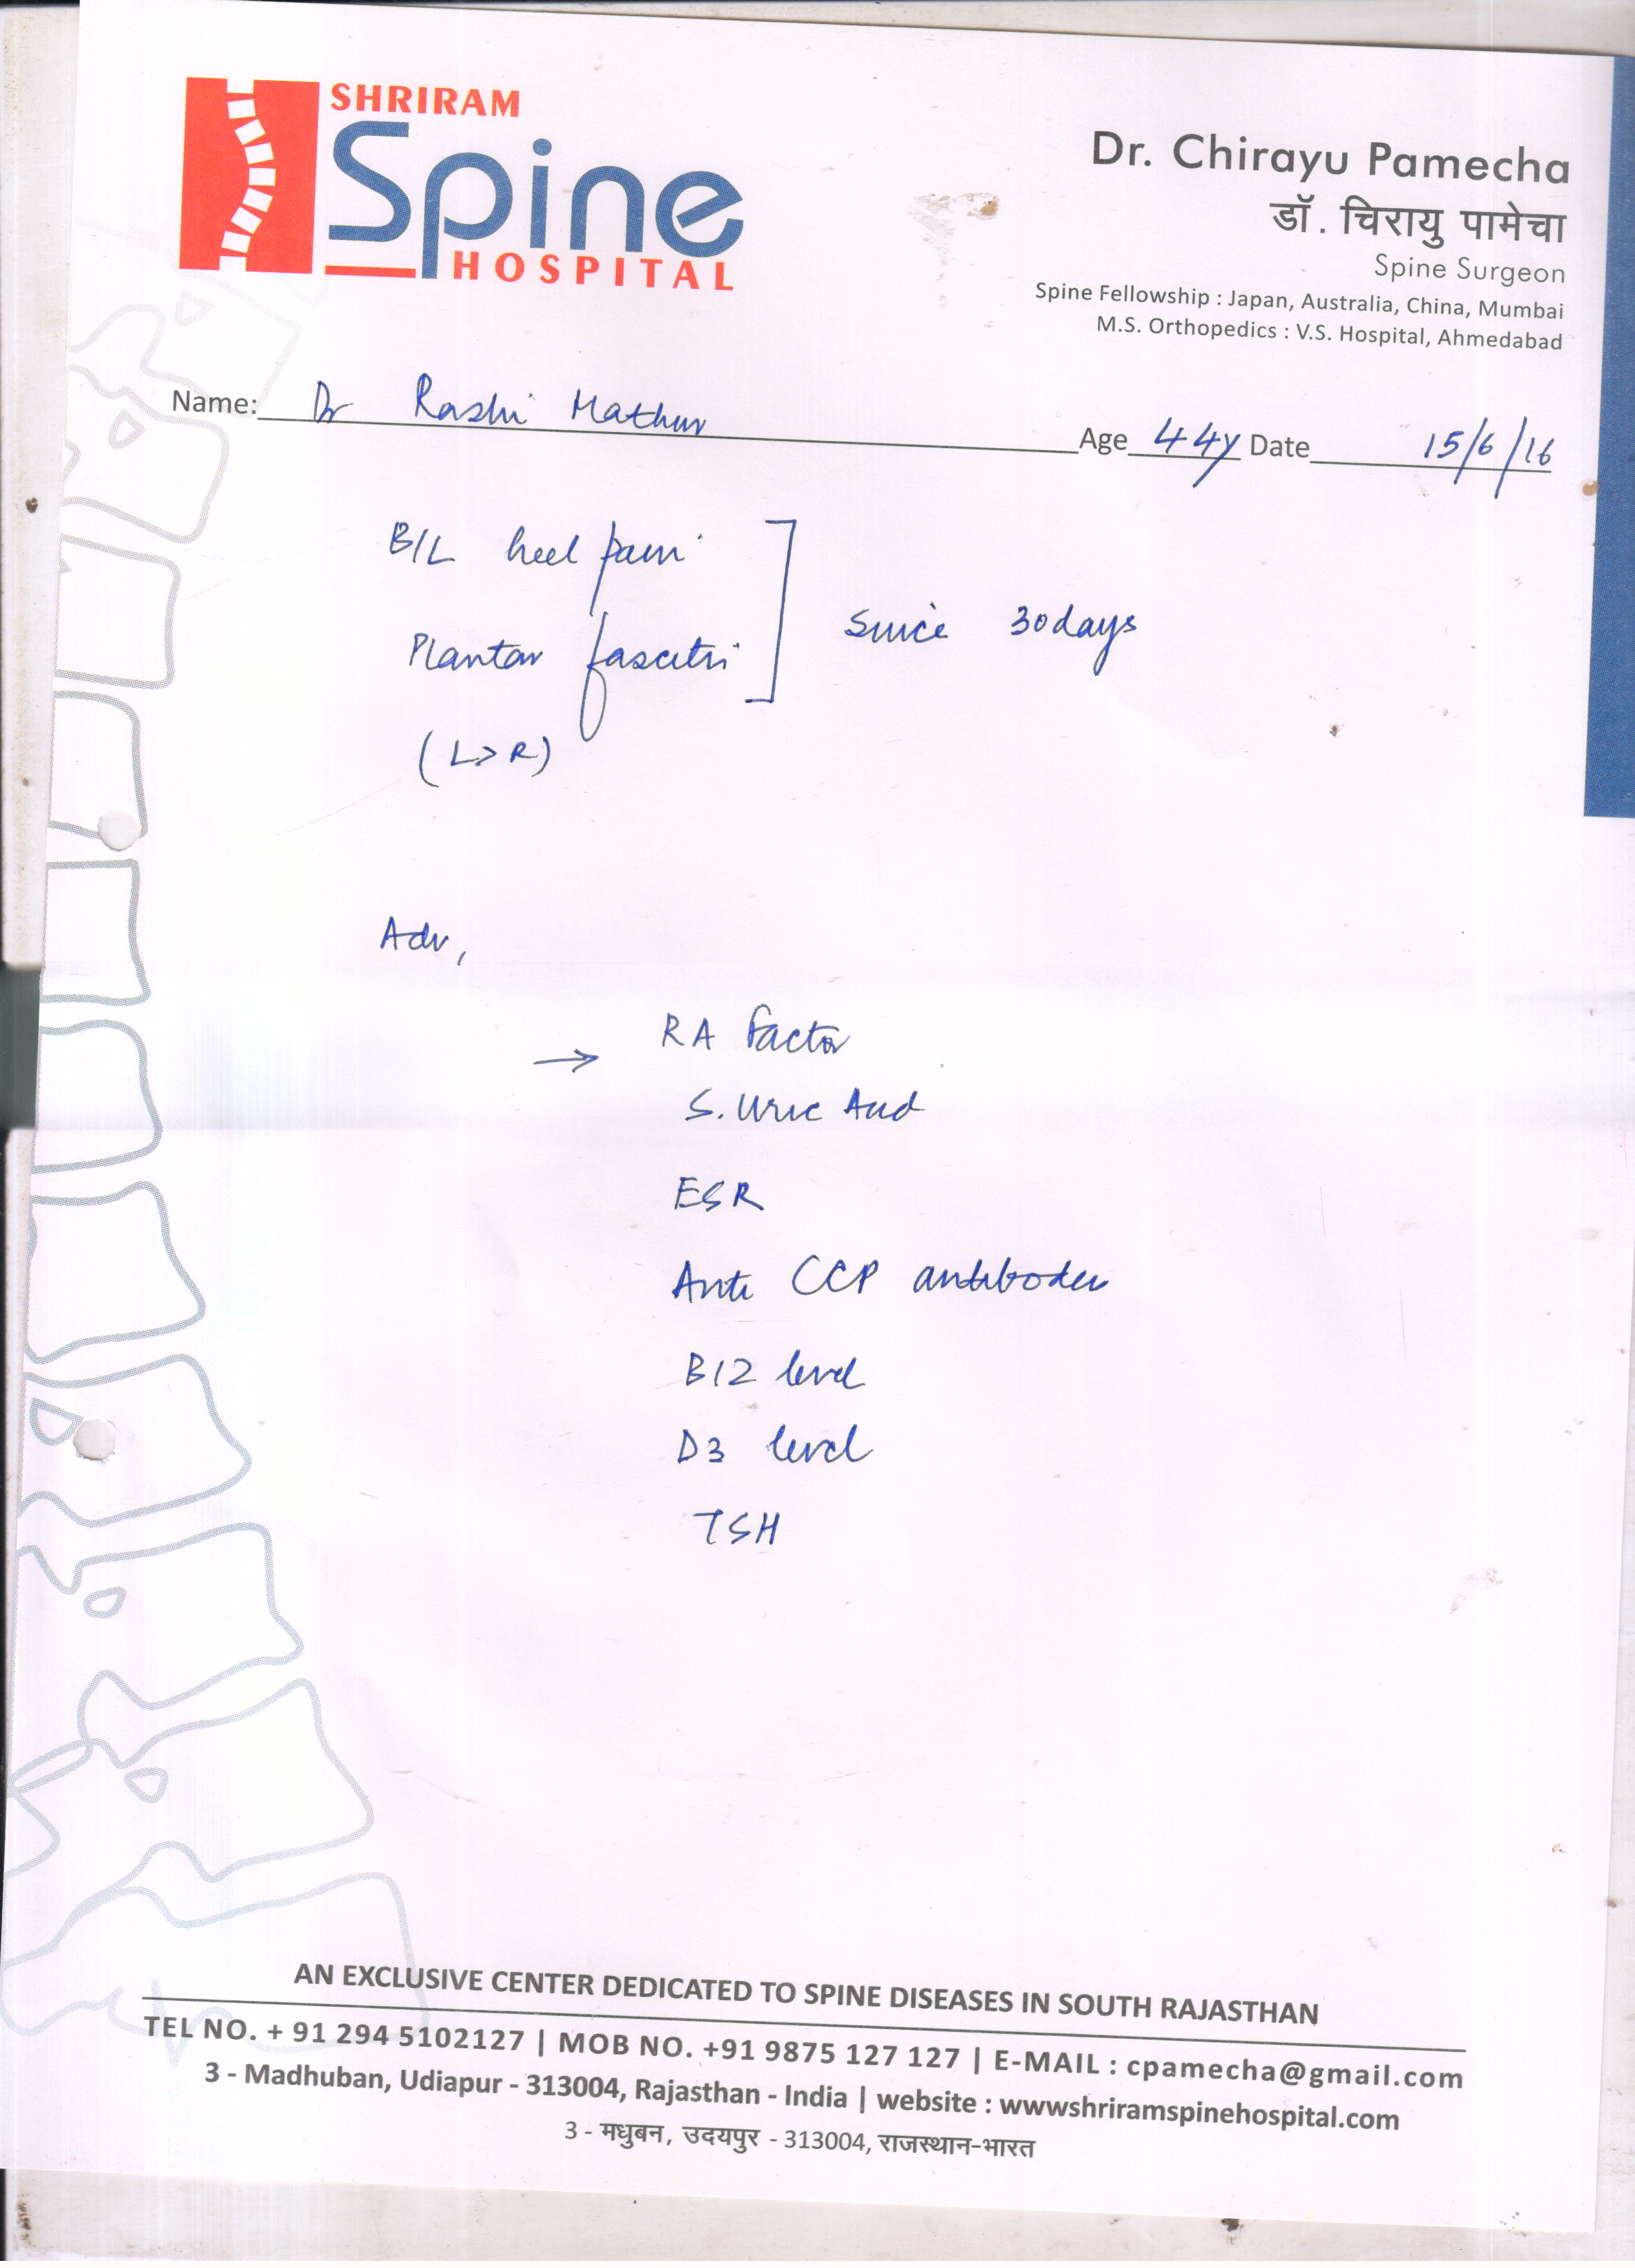 SHRIRAM
Spine
HOSPITAL
Dr. Chirayu Pamecha
डॉ. चिरायु पामेचा
Spine Surgeon
Spine Fellowship : Japan, Australia, China, Mumbai
M.S. Orthopedics : V.S. Hospital, Ahmedabad
Name: Dr Rashi Mathur Age 44y Date 15/6/16
B/L heel pain
Plantar fascitis
since 30days
(L>R)
Adv,
→ RA factor
S. Uric Acid
ESR
Anti CCP antibodies
B12 level
D3 level
TSH
AN EXCLUSIVE CENTER DEDICATED TO SPINE DISEASES IN SOUTH RAJASTHAN
TEL NO. + 91 294 5102127 | MOB NO. +91 9875 127 127 | E-MAIL : cpamecha@gmail.com
3 - Madhuban, Udiapur - 313004, Rajasthan - India | website : wwwshriramspinehospital.com
3 - मधुबन, उदयपुर - 313004, राजस्थान-भारत